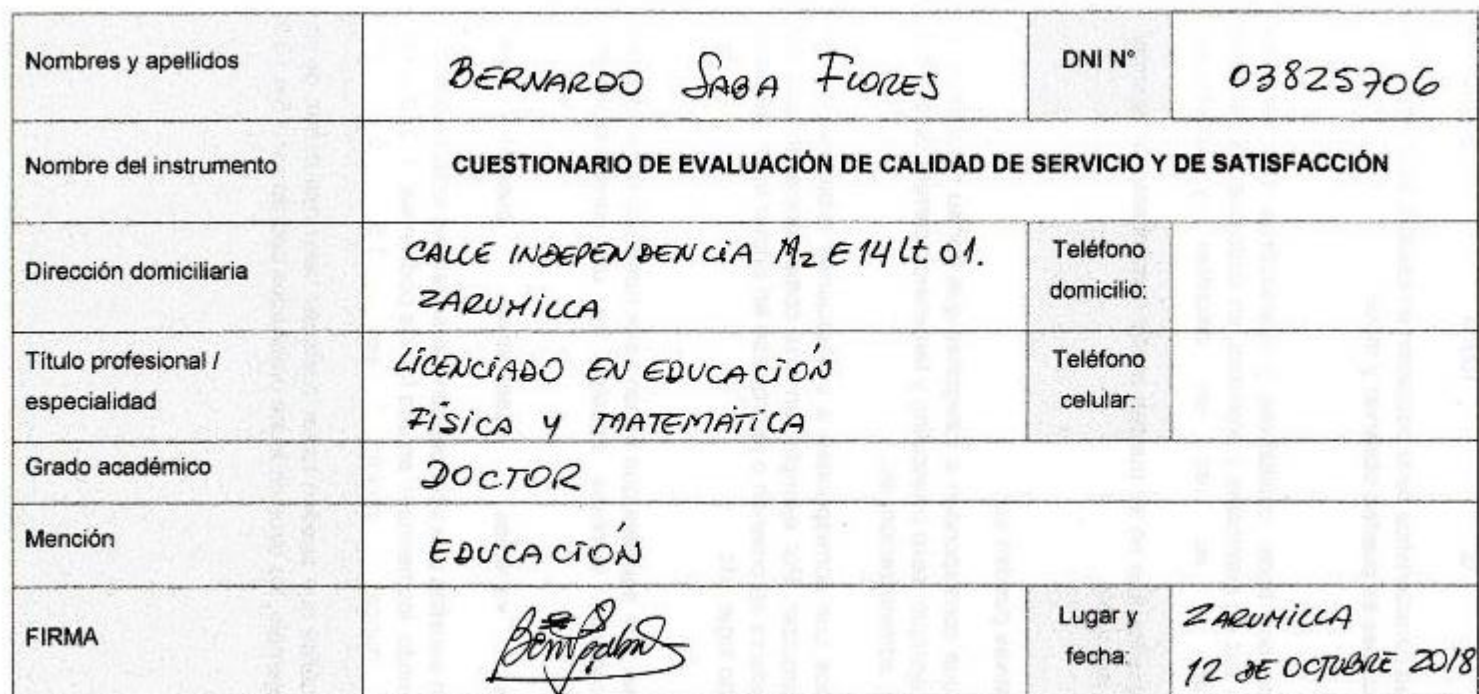 Nombres y apellidos
BERNARDO SABA FLORES
DNI N°
03825706
Nombre del instrumento
CUESTIONARIO DE EVALUACIÓN DE CALIDAD DE SERVICIO Y DE SATISFACCIÓN
Dirección domiciliaria
CALLE INDEPENDENCIA Mz E14 Lt 01.
ZARUMILLA
Teléfono
domicilio:
Título profesional /
especialidad
LICENCIADO EN EDUCACIÓN
FÍSICA Y MATEMÁTICA
Teléfono
celular:
Grado académico
DOCTOR
Mención
EDUCACIÓN
FIRMA
Lugar y
fecha:
ZARUMILLA
12 DE OCTUBRE 2018